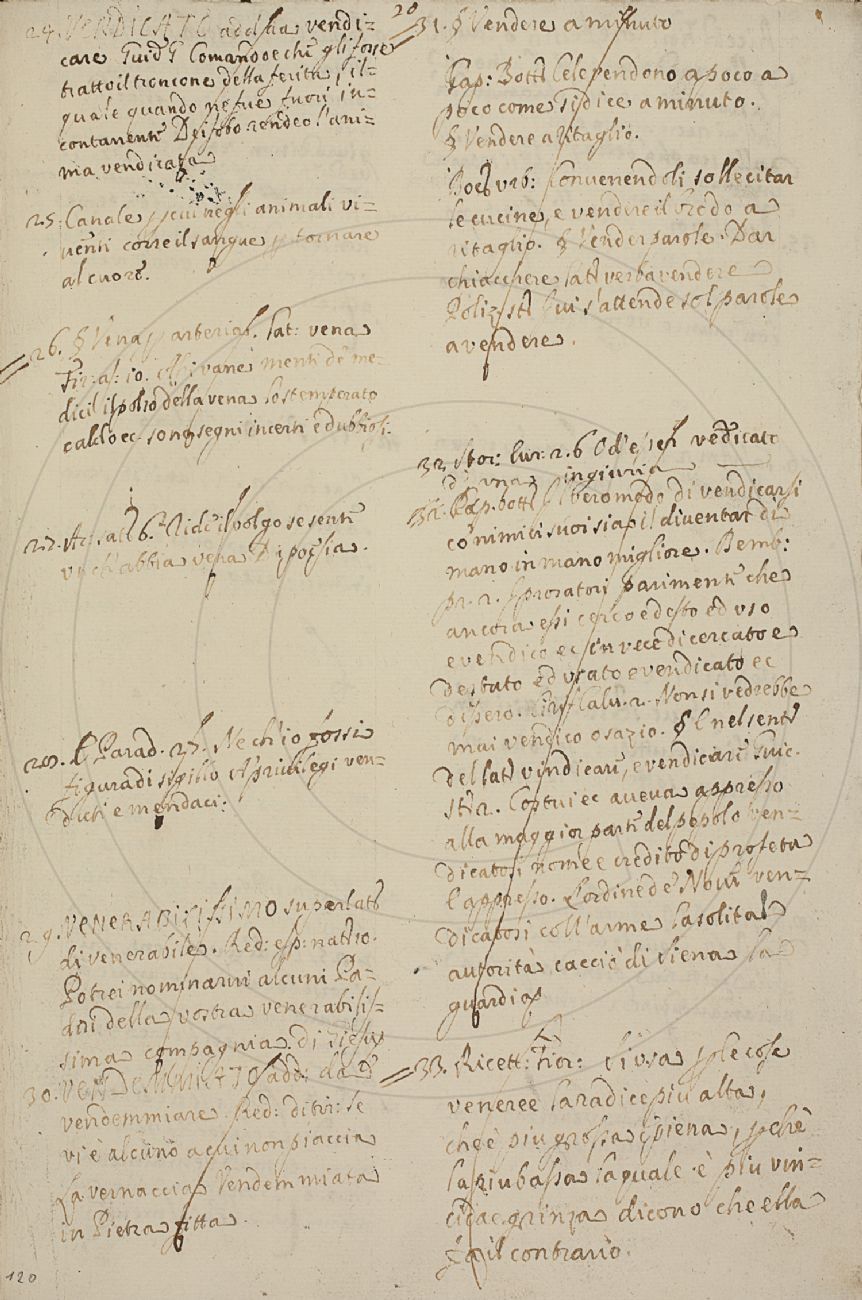 20
24. VENDICATO add. da vendi=
care Guid. G Comandoe chè gli fosse
tratto il troncone della ferita, il=
quale quando ne fue fuori in=
contanente Deifobo rendeo l'ani=
ma vendicata
25. Canale p cui negli animali vi=
venti corre il sangue p tornare
al cuore.
26. § Vena p arteria. Lat: vena
Fir: as: 10.
dici il polso della vena lo stemperato
caldo ec. sono segni incerti e dubbiosi.
27. 6. Ride il volgo se sente
un ch'abbia vena Di poesia.
28. § Parad. 27. Ne ch'io fossi
figura di sigillo A privilegi ven=
duti e mendaci.
29. VENERABILISSIMO superlat.
di venerabile. Red: esp: nat: 10.
Potrei nominarvi alcuni Pa=
dri della vostra venerabilis=
sima compagnia di Giesù
30. VENDEMMIATO add: da
vendemmiare. Red: ditir: Se
vi è alcuno a cui non piaccia
La vernaccia Vendemmiata
in Pietra fitta.
31. § Vendere a minuto
Cap: Bott. Ce le vendono a poco a
poco come si dice a minuto.
§ Vendere a ritaglio.
Convenendoli sollecitar
le cucine, e vendere il brodo a
ritaglio. § Vender parole. Dar
chiacchere lat. verba vendere
Poliz: st. Qui s'attende sol parole
a vendere.
32. Stor: Eur: 2. 6 vendicato
d'una ingiuria
32. Cap. Bott. Il vero modo di vendicarsi
co' nimici suoi si a pil diventar di
mano in mano migliore. Bemb:
pr. 2. I prosatori parimente che
ancora essi cerco e desto ed uso
e vendico ec in vece di cercato e
destato ed usato e vendicato ec
dissero. 2. Non si vedrebbe
mai vendico o sazio. § E nel sent.
del lat. vindicare, e vendicare
st. 2. Costui ec aveva appresso
alla maggior parte del popolo ven=
dicatosi nome e credito di profeta
E appresso. L'ordine de' Nove ven=
dicatosi coll'arme la solita
autorità cacciò di Siena la
guardia
33. Ricett: Fior: Si usa p le cose
veneree la radice più alta,
che è più grossa e piena, p chè
la più bassa la quale è più vin=
cida e grinza dicono che ella
fa il contrario.
120